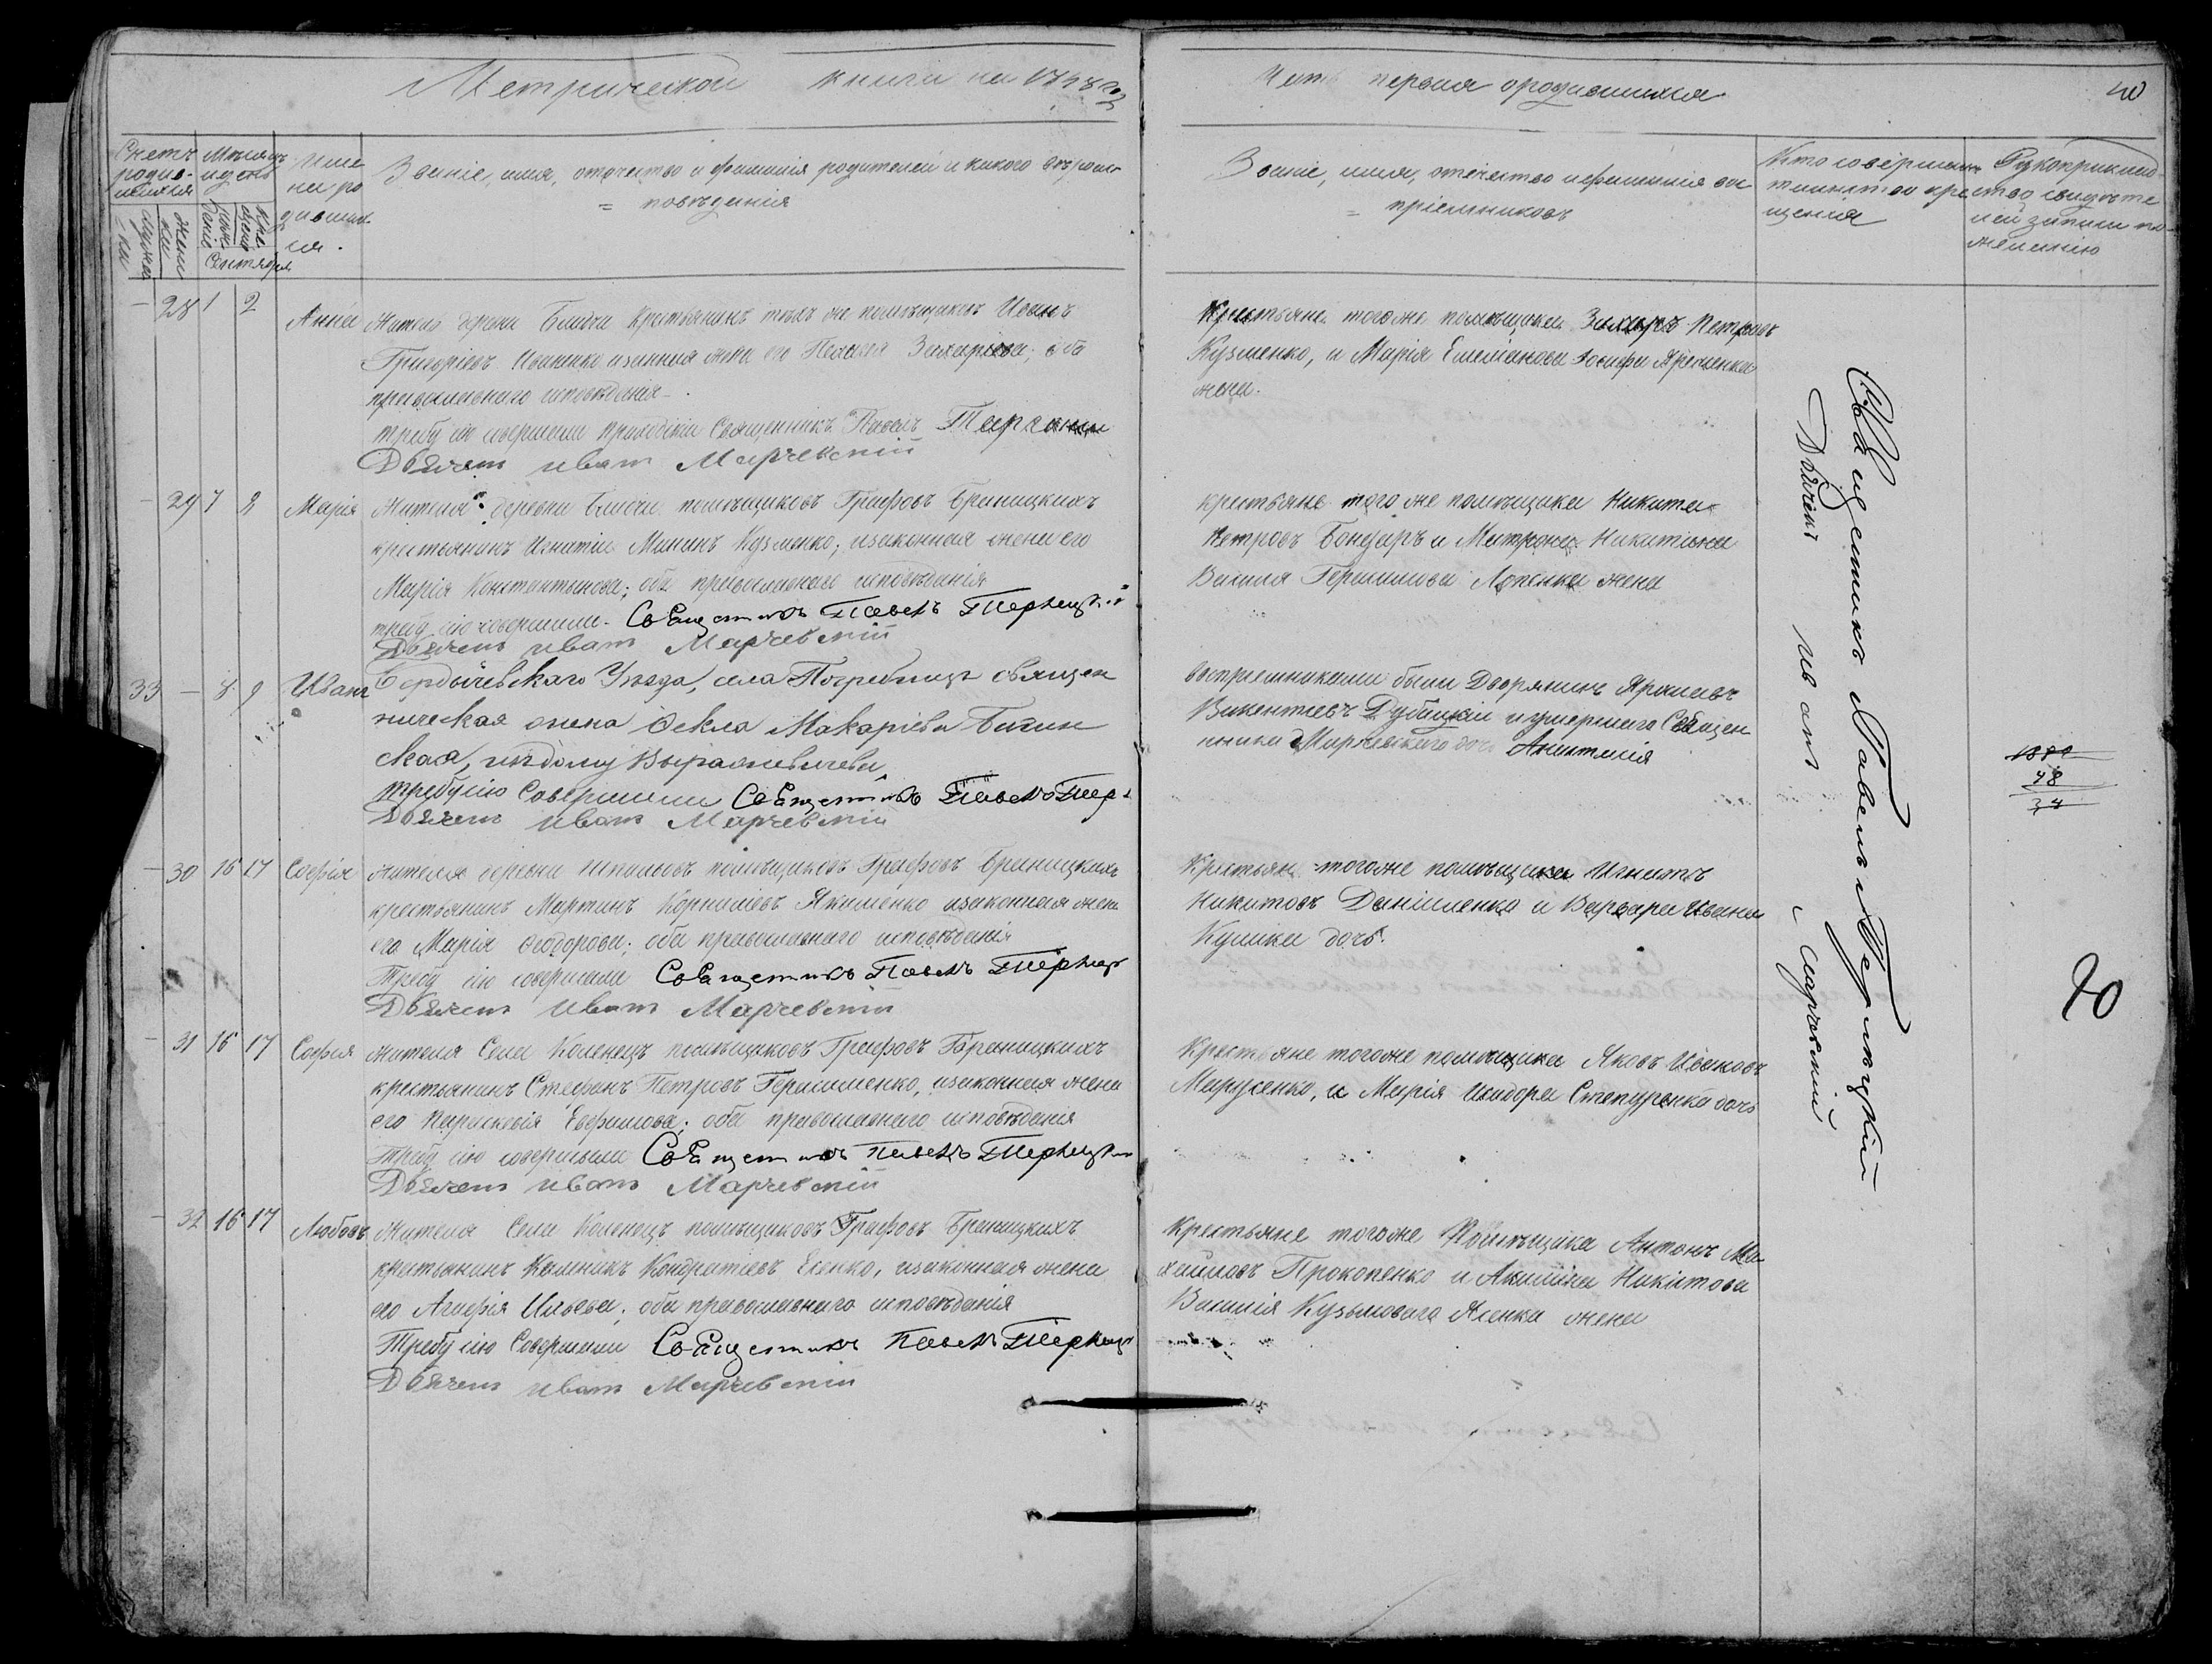 Метрической книги на 1848
Часть первая о родившихся
40
Счетъ родив-шихся
мужеска
женска
Мѣсяцъ и день
рожденіе
крещеніе
Сентября
Имена родившихся.
Званіе, имя, отчество и фамилія родителей и какого вѣроис-
= повѣданія
Званіе, имя, отчество и фамилія вос
= пріемниковъ
Кто совершалъ таинство крещенія
Рукоприкладство свидѣтелей записи по желанію
28 1 2 Анна
Житель деревни крестьянинъ тѣхъ же помѣщиковъ Иванъ
Григоріевъ Иваненко и законная жена его Пелагея Захаріева; оба
православнаго исповѣданія.
требу сію совершали приходскій Священникъ Павелъ
Дьячекъ Иванъ Марчевскій
Крестьяне того же помѣщика Захаръ Петровъ
Кузменко, и Марія Емеліанова Іосифа Яременка
жена.
29 7 8 Марія
Жители деревни помѣщиковъ Графовъ Браницкихъ
крестьянинъ Игнатій Мининъ Кузменко; и законная жена его
Марія Константинова; оба православнаго исповѣданія
требу сію совершали. Священникъ Павелъ Терлецкій
Дьячекъ Иванъ Марчевскій
крестьяне того же помѣщика Никита
Петровъ Бондаръ и Матрона Никитина
Василя Герасимова жена
33 8 9 Иванъ
Бердычевскаго Уѣзда, села Погребищъ священ
ническая жена Ѳекла Макаріева
ская,
требу сію Совершали Священникъ Павелъ Тер
Дьячекъ Иванъ Марчевскій
воспріемниками были Дворянинъ
Викентіевъ Дубицкій и умершаго Священ
ника Марчевскаго дочь Анастасія
30 16 17 Софія
жители деревни помѣщиковъ Графовъ Браницкихъ
крестьянинъ Мартинъ Корниліевъ Якименко и законная жена
его Марія Ѳеодорова; оба православнаго исповѣданія
Требу сію совершали Священникъ Павелъ Терлец
Дьячекъ Иванъ Марчевскій
Крестьяне того же помѣщика Игнатъ
Никитовъ Даниленко и Варвара Ивана
Кулика дочь.
31 16 17 Софія
жители Села Коленецъ помѣщиковъ Графовъ Браницкихъ
крестьянинъ Стефанъ Петровъ Герасименко, и законная жена
его Параскевія Евфимова; оба православнаго исповѣданія
Требу сію совершали Священникъ Павелъ Терлецкій
Дьячекъ Иванъ Марчевскій
Крестьяне того же помѣщика Яковъ Ивановъ
Марусенко, и Марія Исидора Степуренка дочь
32 16 17 Любовъ
Жители Села Коленецъ помѣщиковъ Графовъ Браницкихъ
крестьянинъ Каленикъ Кондратіевъ Есенко, и законная жена
его Агафія Ильева; оба православнаго исповѣданія
Требу сію Совершали Священникъ Павелъ Терлецк
Дьячекъ Иванъ Марчевскій
Крестьяне того же Помѣщика Антонъ Ми
хайловъ Прокопенко и Акилина Никитова
Василія Кузьмоваго жена
Священникъ Павелъ Терлецкій
Дьячекъ Иванъ Марчевскій
1882
48
34
40